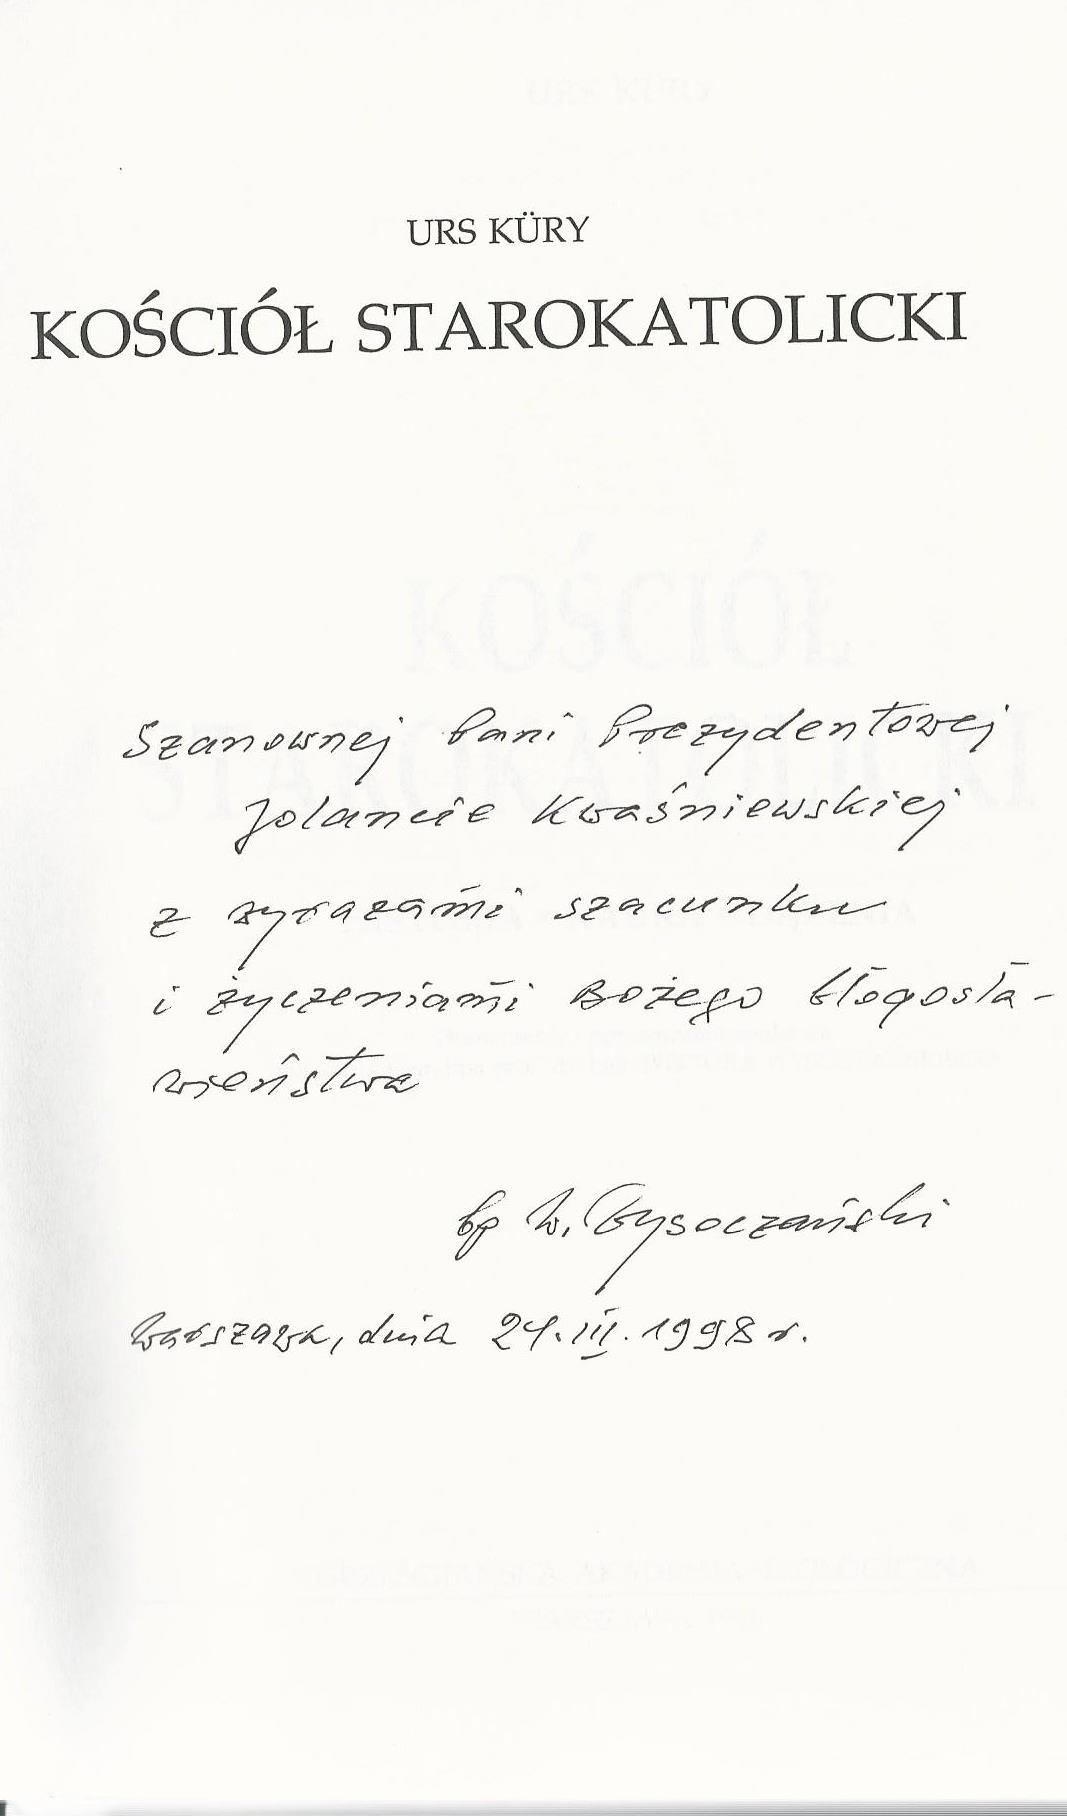 URS KÜRY
KOŚCIÓŁ STAROKATOLICKI
KOŚCIÓŁ
STAROKATOLICKI
Szanownej Pani Prezydentowej
Jolancie Kwaśniewskiej
z wyrazami szacunku
i życzeniami Bożego błogosła-
wieństwa
bp W. Wysoczański
Warszawa, dnia 24.III.1998 r.